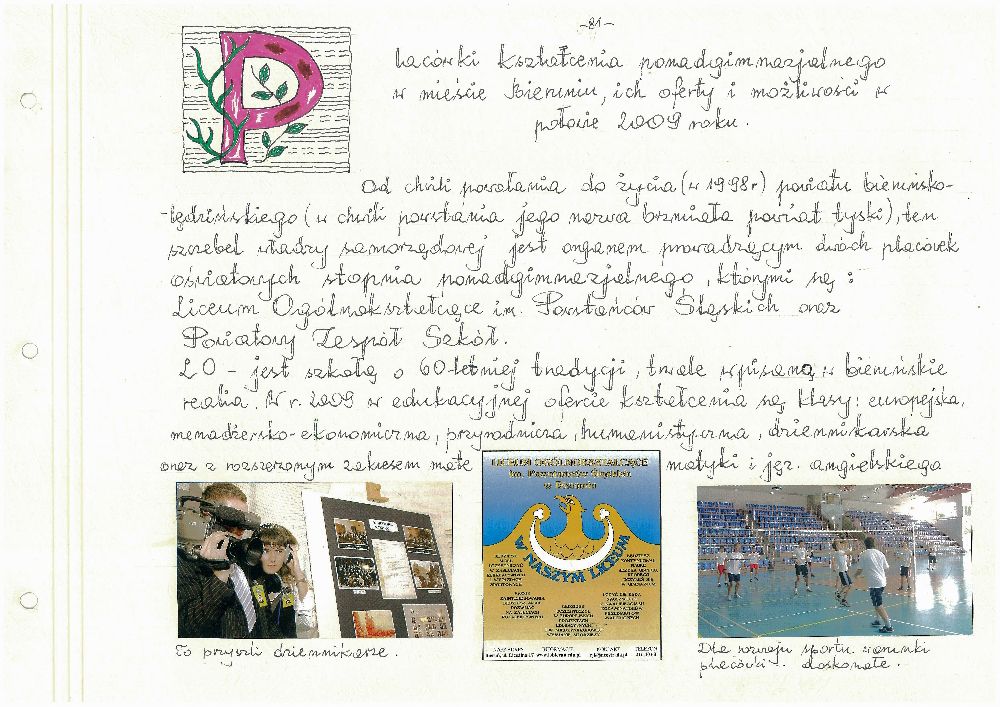 -81-
Placówki kształcenia ponadgimnazjalnego
w mieście Bieruniu, ich oferty i możliwości w
połowie 2009 roku.
Od chwili powołania do życia (w 1998r) powiatu bieruńsko-
-lędzińskiego (w chwili powstania jego nazwa brzmiała powiat tyski), ten
szczebel władzy samorządowej jest organem prowadzącym dwóch placówek
oświatowych stopnia ponadgimnazjalnego, którymi są:
Liceum Ogólnokształcące im. Powstańców Śląskich oraz
Powiatowy Zespół Szkół.
LO - jest szkołą o 60-letniej tradycji, trwale wpisaną w bieruńskie
realia. W r. 2009 w edukacyjnej ofercie kształcenia są klasy: europejska,
menadżersko-ekonomiczna, przyrodnicza, humanistyczna, dziennikarska
oraz z rozszerzonym zakresem mate
matyki i jęz. angielskiego
LICEUM OGÓLNOKSZTAŁCĄCE
im. Powstańców Śląskich
w Bieruniu
W NASZYM LICEUM
To przyszli dziennikarze.
Dla rozwoju sportu warunki
placówki - doskonałe.